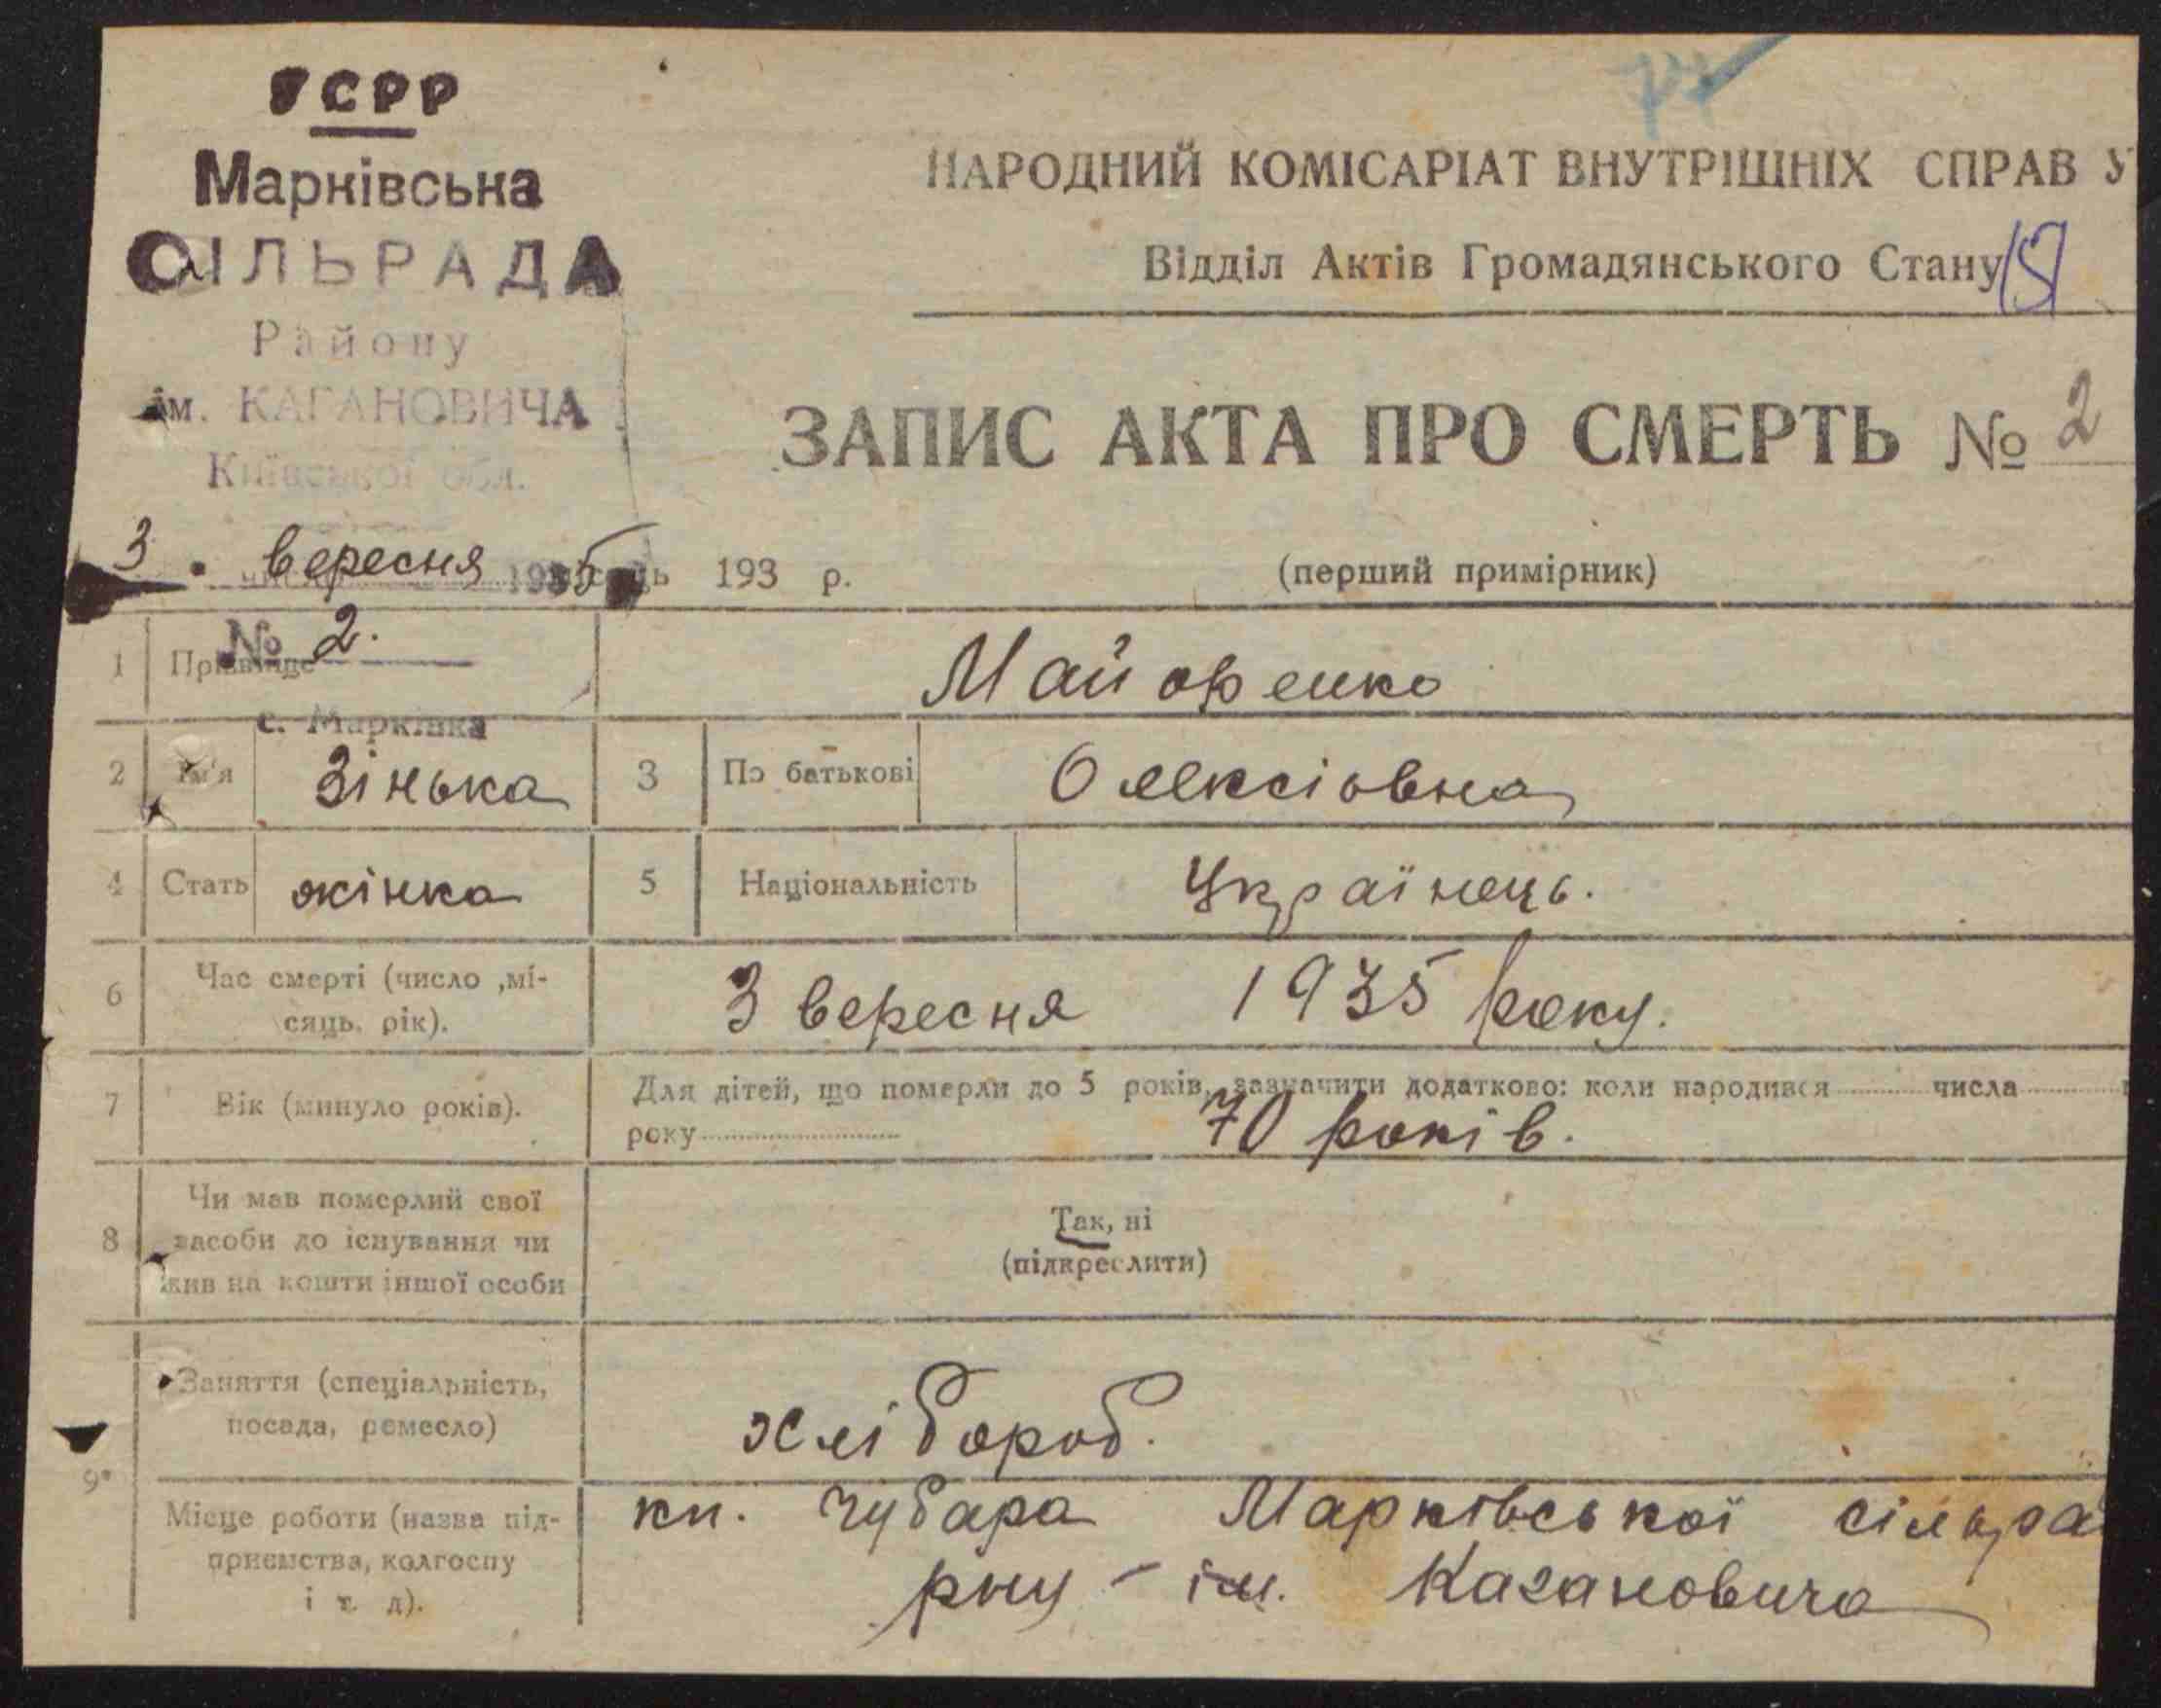 УСРР
Марківська
СІЛЬРАДА
Району
ім. КАГАНОВИЧА
Київської обл.
НАРОДНИЙ КОМІСАРІАТ ВНУТРІШНІХ СПРАВ У
Відділ Актів Громадянського Стану
ЗАПИС АКТА ПРО СМЕРТЬ № 2
3 вересня 1935 193 р.
(перший примірник)
№ 2.
1 Прізвище Майоренко
с. Марківка
2 Ім'я Зінька 3 По батькові Олексіовна
4 Стать жінка 5 Національність Українець.
6 Час смерті (число ,мі-
сяць, рік).
3 вересня 1935 року.
7 Вік (минуло років).
Для дітей, що померли до 5 років, зазначити додатково: коли народився числа
року 70 років.
8 Чи мав померлий свої
засоби до існування чи
жив на кошти іншої особи
Так, ні
(підкреслити)
9 Заняття (спеціальність,
посада, ремесло)
хлібороб.
Місце роботи (назва під-
приємства, колгоспу
і т. д).
кп. Чубара Марківської сільра
рну - ім. Кагановича